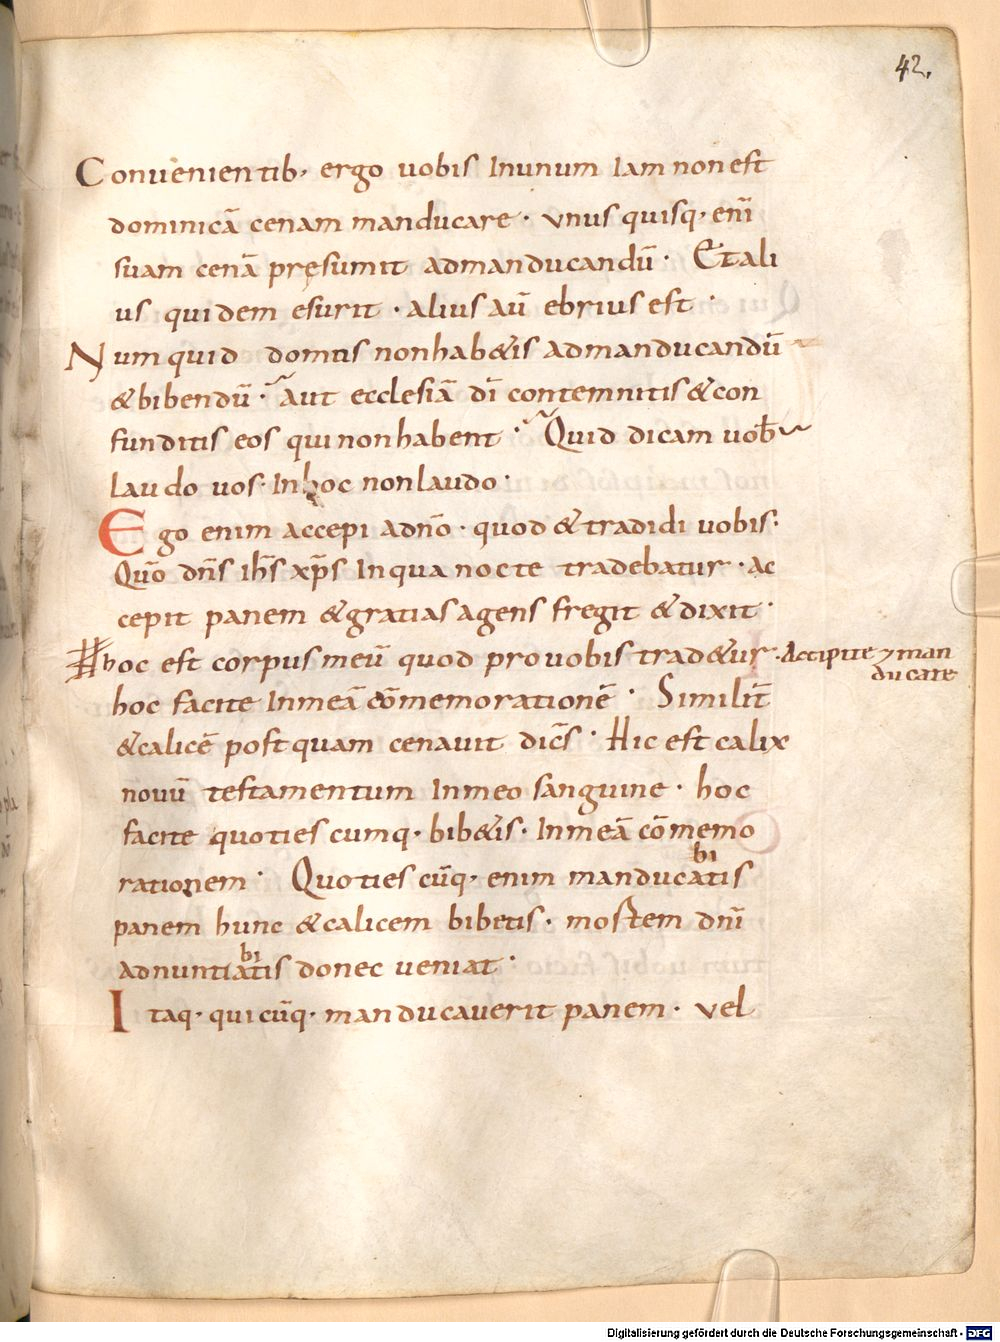 42.
Conuenientib; ergo uobis Inunum Iam non est
dominicā cenam manducare · vnus quisq; enī
suam cenā pręsumit admanducandū · Et ali
us quidem esurit · alius aū ebrius est ·
Num quid domus non hab&is admanducandū
& bibendū · Aut ecclesiā dī contemnitis & con
funditis eos qui non habent · Quid dicam uob̄
laudo uos · In hoc non laudo ·
Ego enim accepi adnō · quod & tradidi uobis ·
Quō dn̄s ih̄s xp̄s Inqua nocte tradebatur · ac
cepit panem & gratias agens fregit & dixit ·
hoc est corpus meū quod pro uobis trad&ur · Accipite ⁊ man
ducate
hoc facite Inmeā cōmemorationē · Similit̄
& calicē postquam cenauit dic̄s · Hic est calix
nouū testamentum Inmeo sanguine · hoc
facite quotiescumq; bib&is · Inmeā cōmemo
rationem · Quotiescūq; enim manducabitis
panem hunc & calicem bibetis · mortem dnī
adnuntiabitis donec ueniat ·
Itaq; quicūq; manducauerit panem · vel
Digitalisierung gefördert durch die Deutsche Forschungsgemeinschaft - DFG